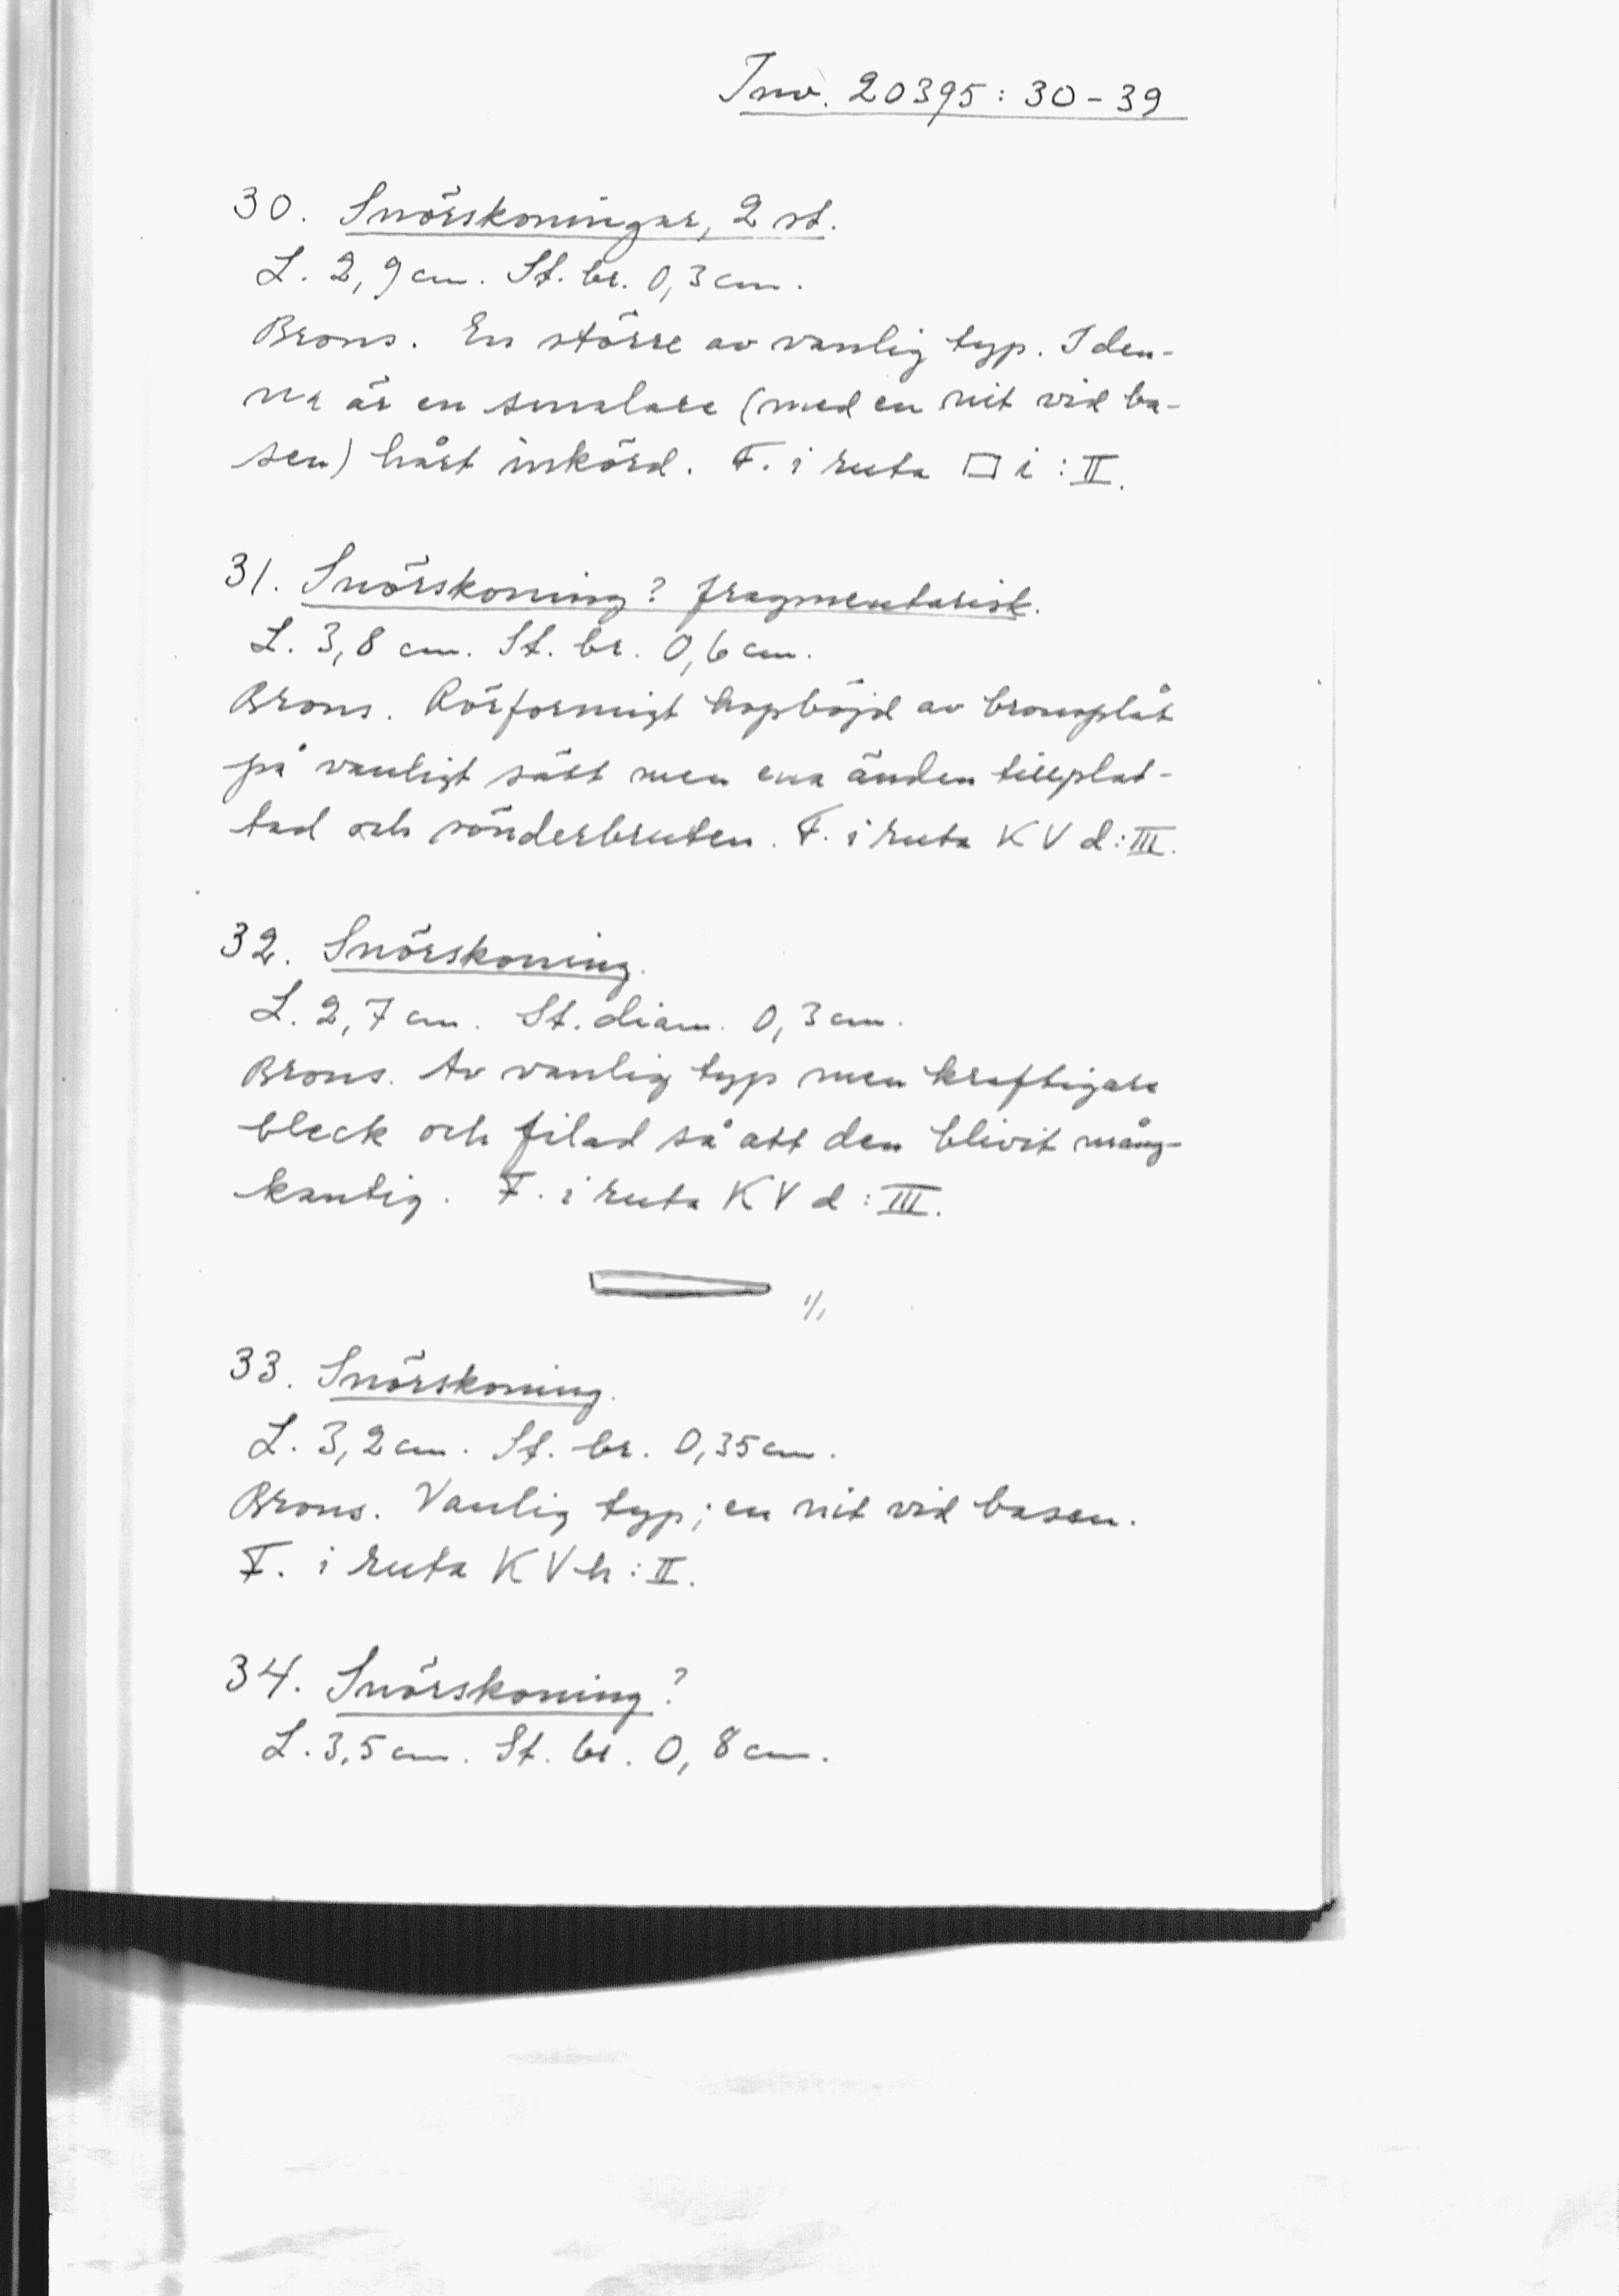 Inv. 20395: 30-39
30. Snörskoningar, 2 st.
L. 2,9 cm. St. br. 0,3 cm.
Brons. En större av vanlig typ. I den-
na är en smalare (med en nit vid ba-
sen) hårt inkörd. F. i ruta □ i : II.
31. Snörskoning? fragmentarisk.
L. 3,8 cm. St. br. 0,6 cm.
Brons. Rörformigt hopböjd av bronsplåt
på vanligt sätt men ena änden tillplat-
tad och sönderbruten. F. i ruta KV d: III.
32. Snörskoning.
L. 2,7 cm. St. diam. 0,3 cm.
Brons. Av vanlig typ men kraftigare
bleck och filad så att den blivit mång-
kantig. F. i ruta KV d : III.
1/1
33. Snörskoning.
L. 3,2 cm. St. br. 0,35 cm.
Brons. Vanlig typ; en nit vid basen.
F. i ruta KV h : II.
34. Snörskoning?
L. 3,5 cm. St. br. 0,8 cm.